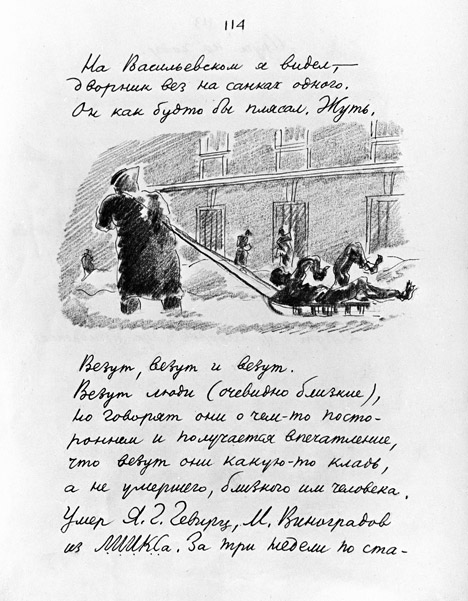 114
На Васильевском я видел,—
дворник вез на санках одного.
Он как будто бы плясал. Жуть.
Везут, везут и везут.
Везут люди (очевидно близкие),
но говорят они о чем-то посто-
роннем и получается впечатление,
что везут они какую-то кладь,
а не умершего, близкого им человека.
Умер Я. Г. Гевирц, М. Виноградов
из ЛИИКСа. За три недели по ста-